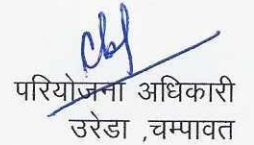 परियोजना अधिकारी
उरेडा ,चम्पावत